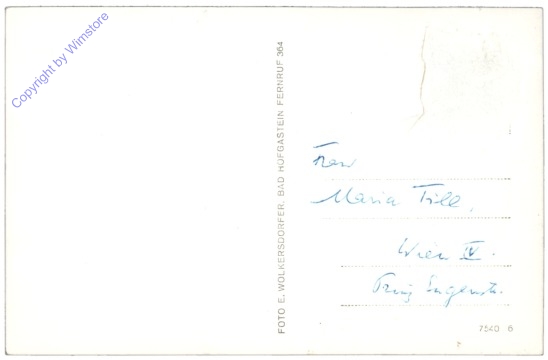 Copyright by Wimstore
FOTO E. WOLKERSDORFER, BAD HOFGASTEIN FERNRUF 364
Frau
Maria Till,
Wien IV.
Prinz Eugenstr.
7540 6